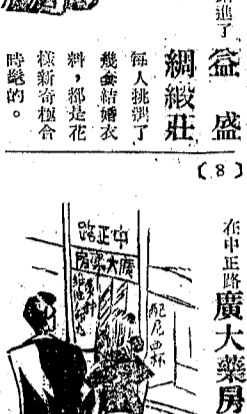 進了
益盛
綢緞莊
每人挑選了
幾套結婚衣
料，都是花
樣新奇極合
時髦的。
〔8〕
在中正路
廣大藥房
中正路
廣大藥房